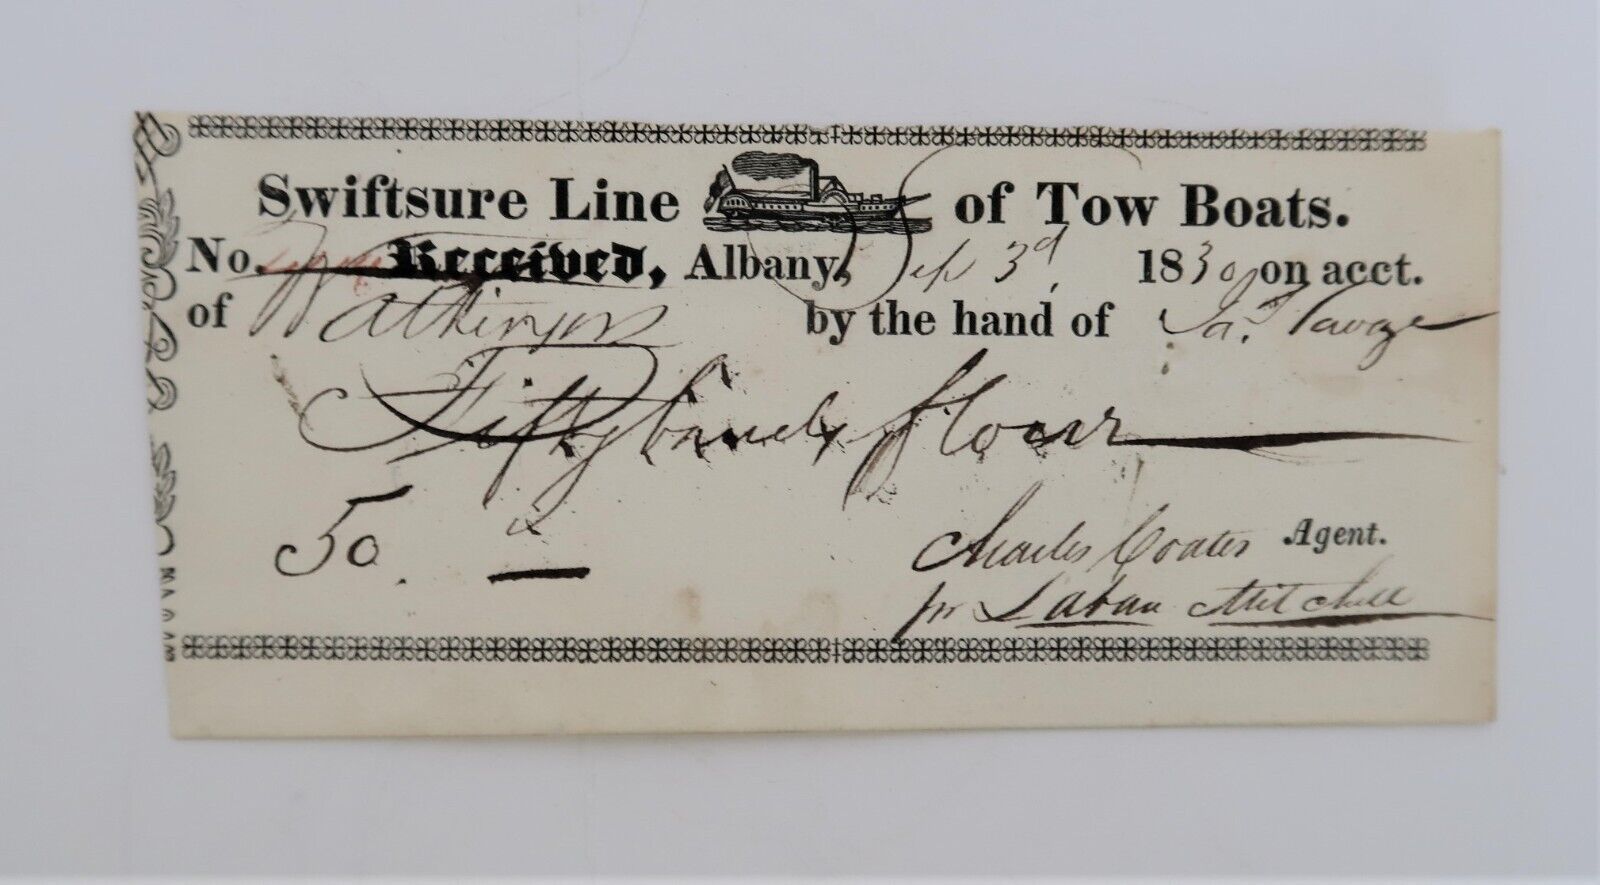 Swiftsure Line of Tow Boats.
No. Received, Albany, Sep 3d, 1830, on acct.
of Watkinson by the hand of Jas.
Fifty barrels flour
50.
Charles Coates Agent.
pr Laban Mitchell